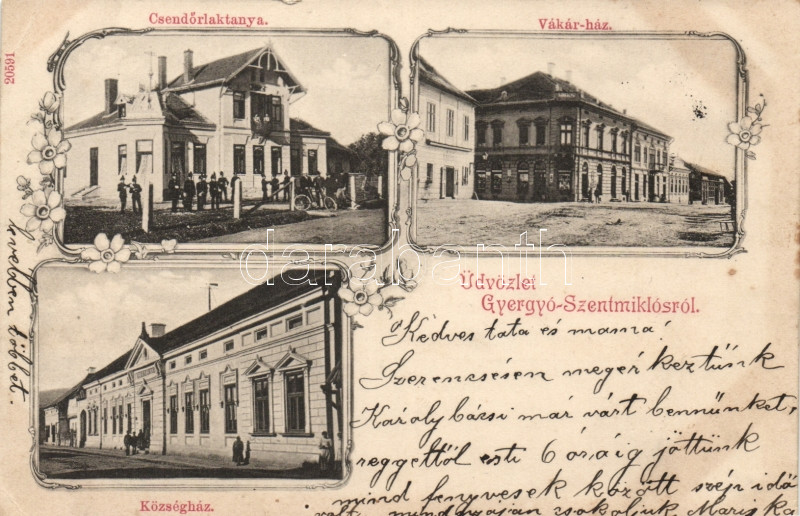 Csendőrlaktanya.
Vákár-ház.
20591
Üdvözlet
Gyergyó-Szentmiklósról.
Kedves tata és mama!
Szerencsésen megérkeztünk
Károly bácsi már várt bennünket,
reggeltől esti 6 óráig jöttünk
mind fenyvesek között szép idő
volt, mindnyájan csokoljuk Mariska
levélben többet.
Községház.
darabanth